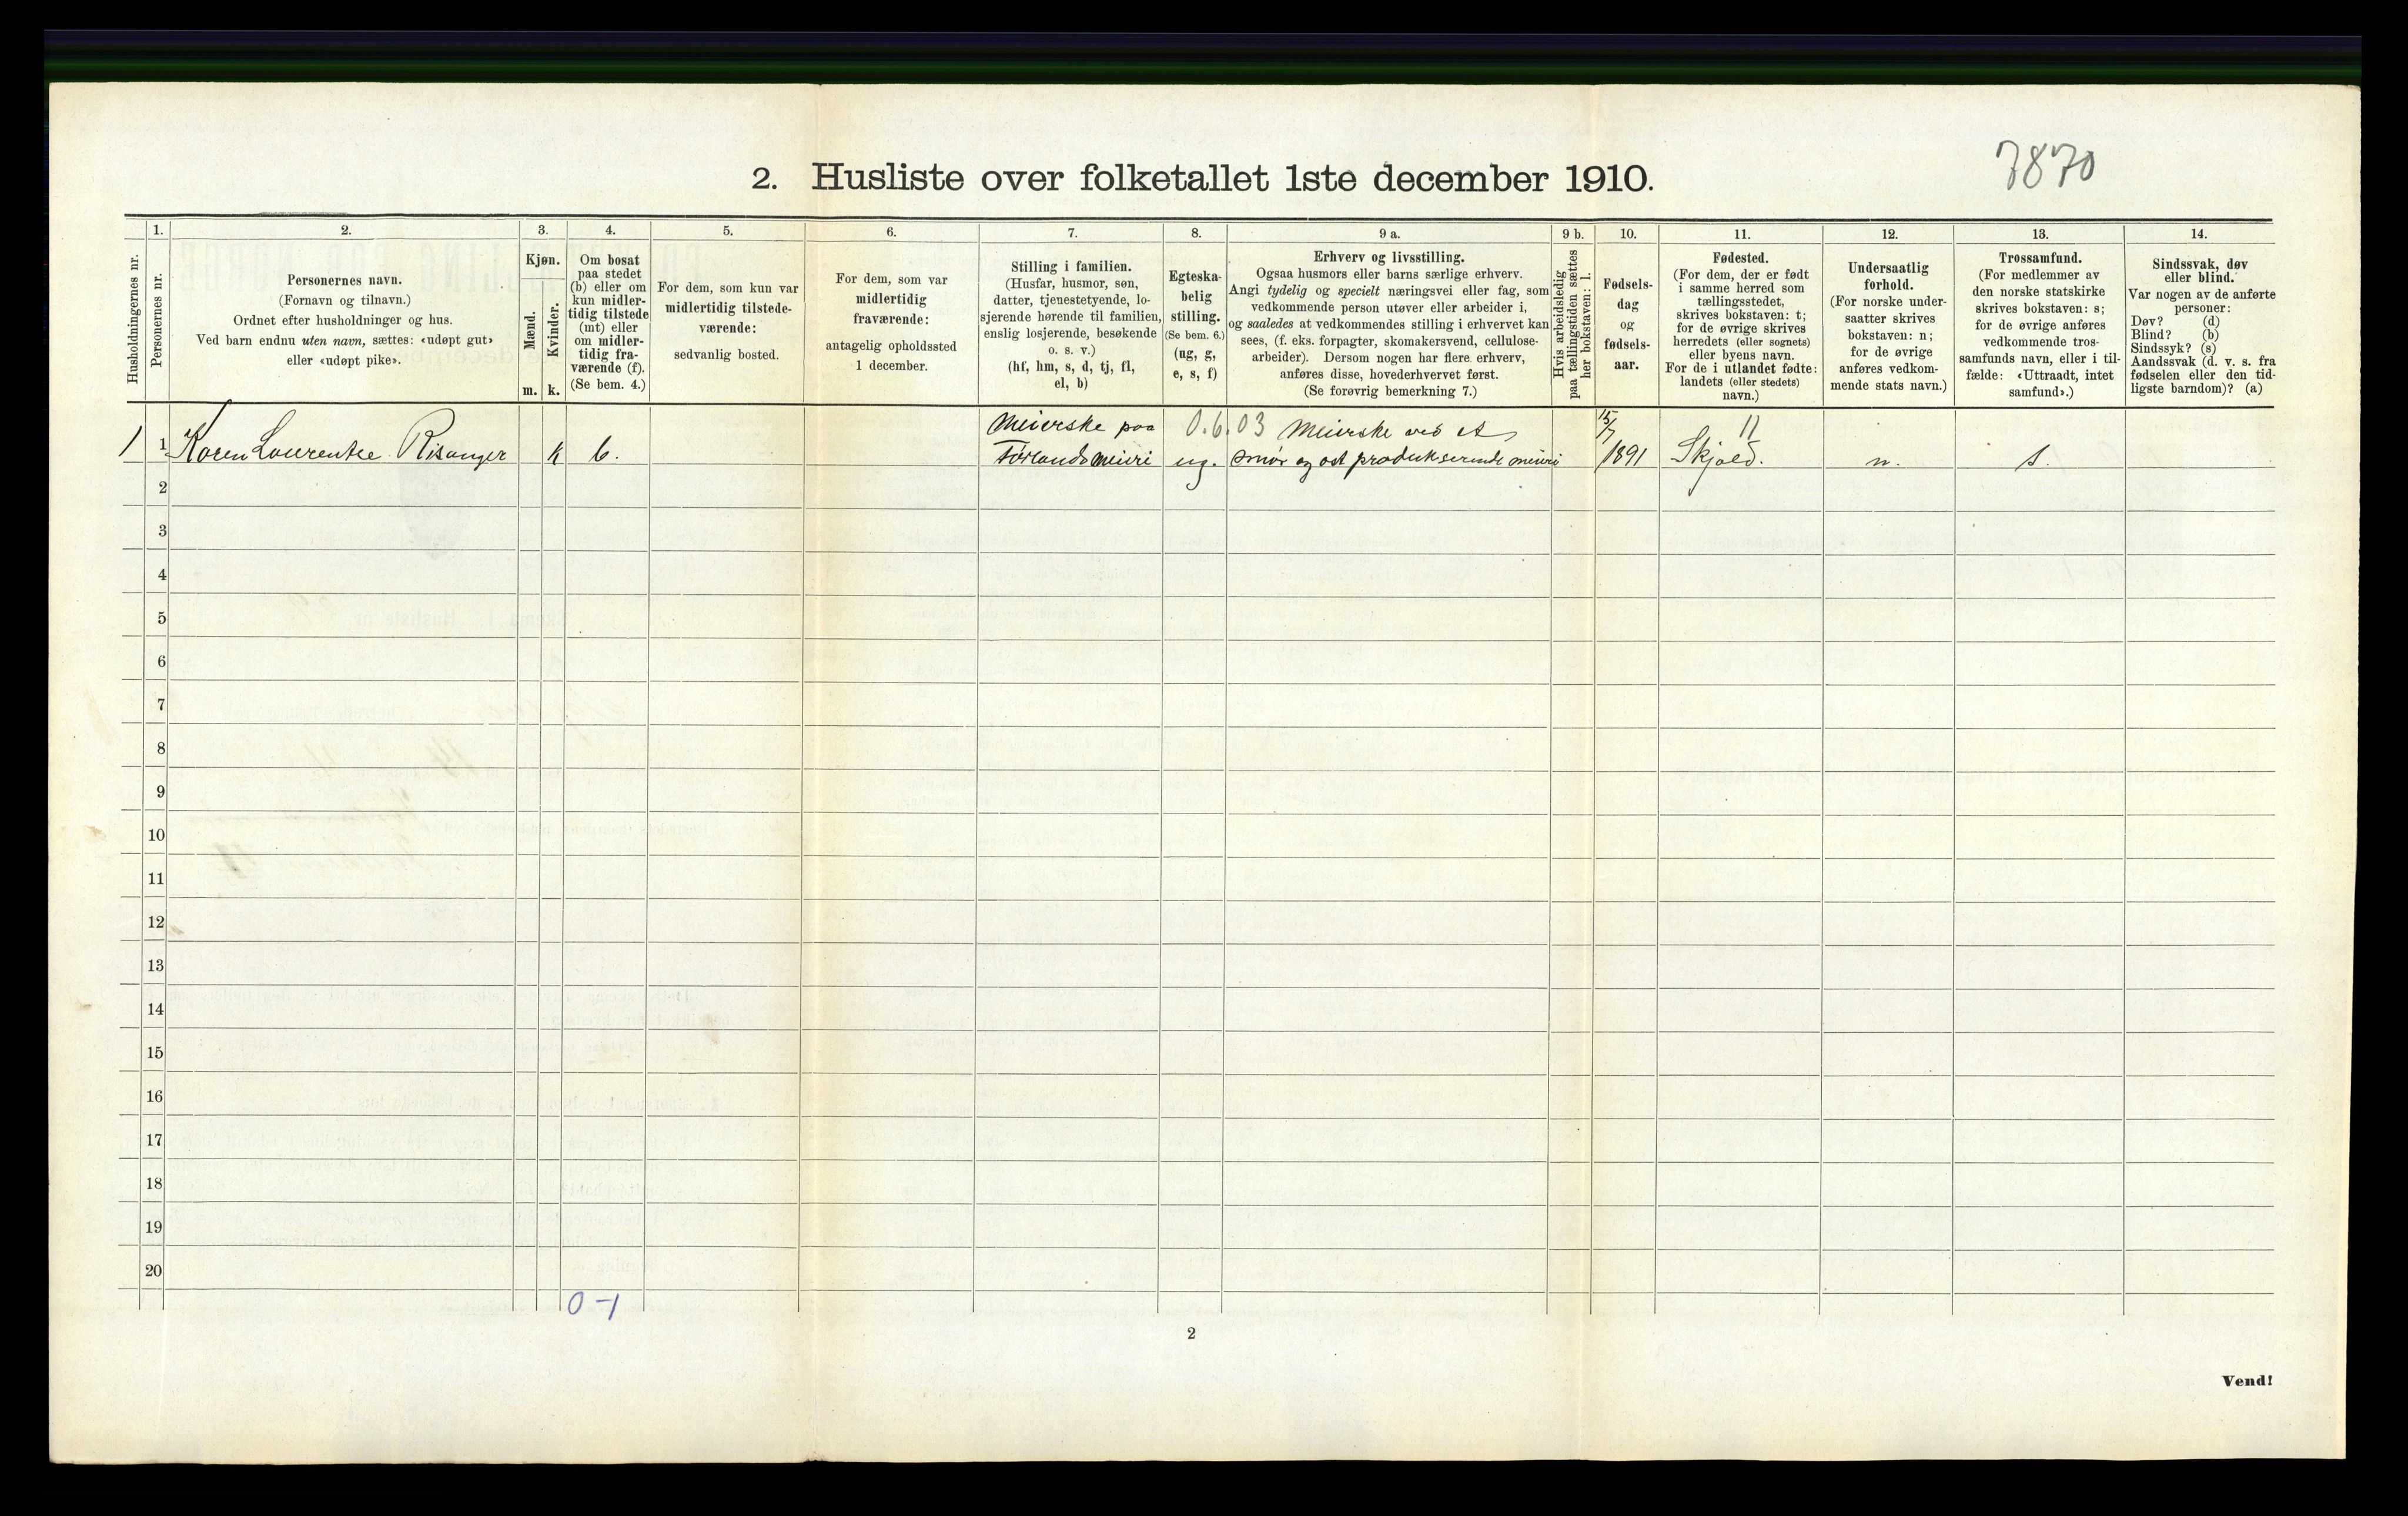 2. Husliste over folketallet 1ste december 1910.
7870
Husholdningernes nr.
1.
Personernes nr.
2.
Personernes navn.
(Fornavn og tilnavn.)
Ordnet efter husholdninger og hus.
Ved barn endnu uten navn, sættes: «udøpt gut»
eller «udøpt pike».
3.
Kjøn.
Mænd.
m.
Kvinder.
k.
4.
Om bosat
paa stedet
(b) eller om
kun midler-
tidig tilstede
(mt) eller
om midler-
tidig fra-
værende (f).
(Se bem. 4.)
5.
For dem, som kun var
midlertidig tilstede-
værende:
sedvanlig bosted.
6.
For dem, som var
midlertidig
fraværende:
antagelig opholdssted
1 december.
7.
Stilling i familien.
(Husfar, husmor, søn,
datter, tjenestetyende, lo-
sjerende hørende til familien,
enslig losjerende, besøkende
o. s. v.)
(hf, hm, s, d, tj, fl,
el, b)
8.
Egteska-
belig
stilling.
(Se bem. 6.)
(ug, g,
e, s, f)
9 a.
Erhverv og livsstilling.
Ogsaa husmors eller barns særlige erhverv.
Angi tydelig og specielt næringsvei eller fag, som
vedkommende person utøver eller arbeider i,
og saaledes at vedkommendes stilling i erhvervet kan
sees, (f. eks. forpagter, skomakersvend, cellulose-
arbeider). Dersom nogen har flere erhverv,
anføres disse, hovederhvervet først.
(Se forøvrig bemerkning 7.)
9 b.
Hvis arbeidsledig
paa tællingstiden sættes
her bokstaven: l.
10.
Fødsels-
dag
og
fødsels-
aar.
11.
Fødested.
(For dem, der er født
i samme herred som
tællingsstedet,
skrives bokstaven: t;
for de øvrige skrives
herredets (eller sognets)
eller byens navn.
For de i utlandet fødte:
landets (eller stedets)
navn.)
12.
Undersaatlig
forhold.
(For norske under-
saatter skrives
bokstaven: n;
for de øvrige
anføres vedkom-
mende stats navn.)
13.
Trossamfund.
(For medlemmer av
den norske statskirke
skrives bokstaven: s;
for de øvrige anføres
vedkommende tros-
samfunds navn, eller i til-
fælde: «Uttraadt, intet
samfund».)
14.
Sindssvak, døv
eller blind.
Var nogen av de anførte
personer:
Døv? (d)
Blind? (b)
Sindssyk? (s)
Aandssvak (d. v. s. fra
fødselen eller den tid-
ligste barndom)? (a)
Meierske paa 0.6.03 Meierske ved et 15/7 11
1 1 Karen Laurentse Risanger k b. Førlands meieri ug. smør og ost produkserende meieri 1891 Skjold. n. s.
2
3
4
5
6
7
8
9
10
11
12
13
14
15
16
17
18
19
20
0-1
2
Vend!